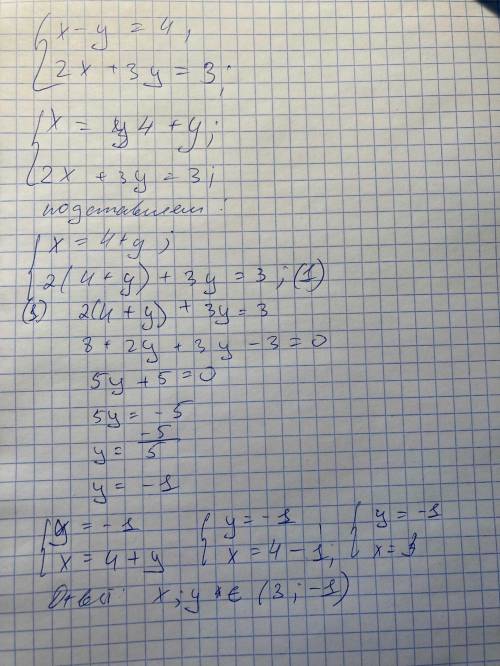 x - y = 4,
2x + 3y = 3;
x = 4 + y;
2x + 3y = 3;
подставляем:
x = 4 + y;
2(4 + y) + 3y = 3; (1)
(1) 2(4 + y) + 3y = 3
8 + 2y + 3y - 3 = 0
5y + 5 = 0
5y = -5
y = -5/5
y = -1
y = -1 y = -1 y = -1
x = 4 + y x = 4 - 1; x = 3
Ответ: x; y ∈ (3; -1)